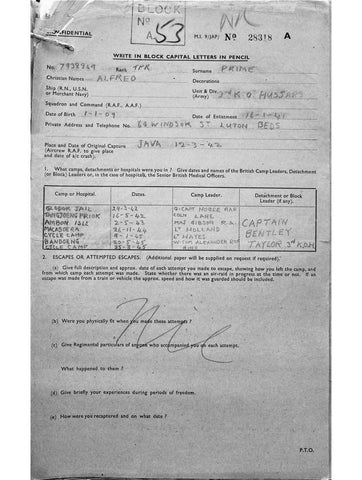 BLOCK
No A53
NR
CONFIDENTIAL
M.I. 9/JAP/ No 28318 A
WRITE IN BLOCK CAPITAL LETTERS IN PENCIL
No. Rank TPR Surname PRIME
Christian Names ALFRED Decorations
Ship (R.N., U.S.N. or Merchant Navy) Unit & Div. (Army) 3rd K.O. HUSSARS
Squadron and Command (R.A.F., A.A.F.)
Date of Birth 1-1-09 Date of Enlistment
Private Address and Telephone No. WINDSOR ST LUTON BEDS
Place and Date of Original Capture JAVA 12-3-42
(Aircrew R.A.F. to give place and date of a/c crash).
1. What camps, detachments or hospitals were you in? Give dates and names of the British Camp Leaders, Detachment (or Block) Leaders or, in the case of hospitals, the Senior British Medical Officers.
Camp or Hospital. Dates. Camp Leader. Detachment or Block Leader (if any).
JAIL G-CAPT NOBLE RAF
TANGJOENG PRIOK 16-5-42 LANE
AMBON ISLE 2-5-43 MAJ GIBSON R.A. CAPTAIN
26-11-44 LT HOLLAND BENTLEY
CYCLE CAMP LT HAYES TAYLOR
BANDOENG W-COM ALEXANDER RAF
CYCLE CAMP DITTO
2. ESCAPES OR ATTEMPTED ESCAPES. (Additional paper will be supplied on request if required).
(a) Give full description and approx. date of each attempt you made to escape, showing how you left the camp, and from which camp each attempt was made. State whether there was an air-raid in progress at the time or not. If an escape was made from a train or vehicle the approx. speed and how it was guarded should be included.
(b) Were you physically fit when you made these attempts?
(c) Give Regimental particulars of anyone who accompanied you on each attempt.
What happened to them?
(d) Give briefly your experiences during periods of freedom.
(e) How were you recaptured and on what date?
P.T.O.